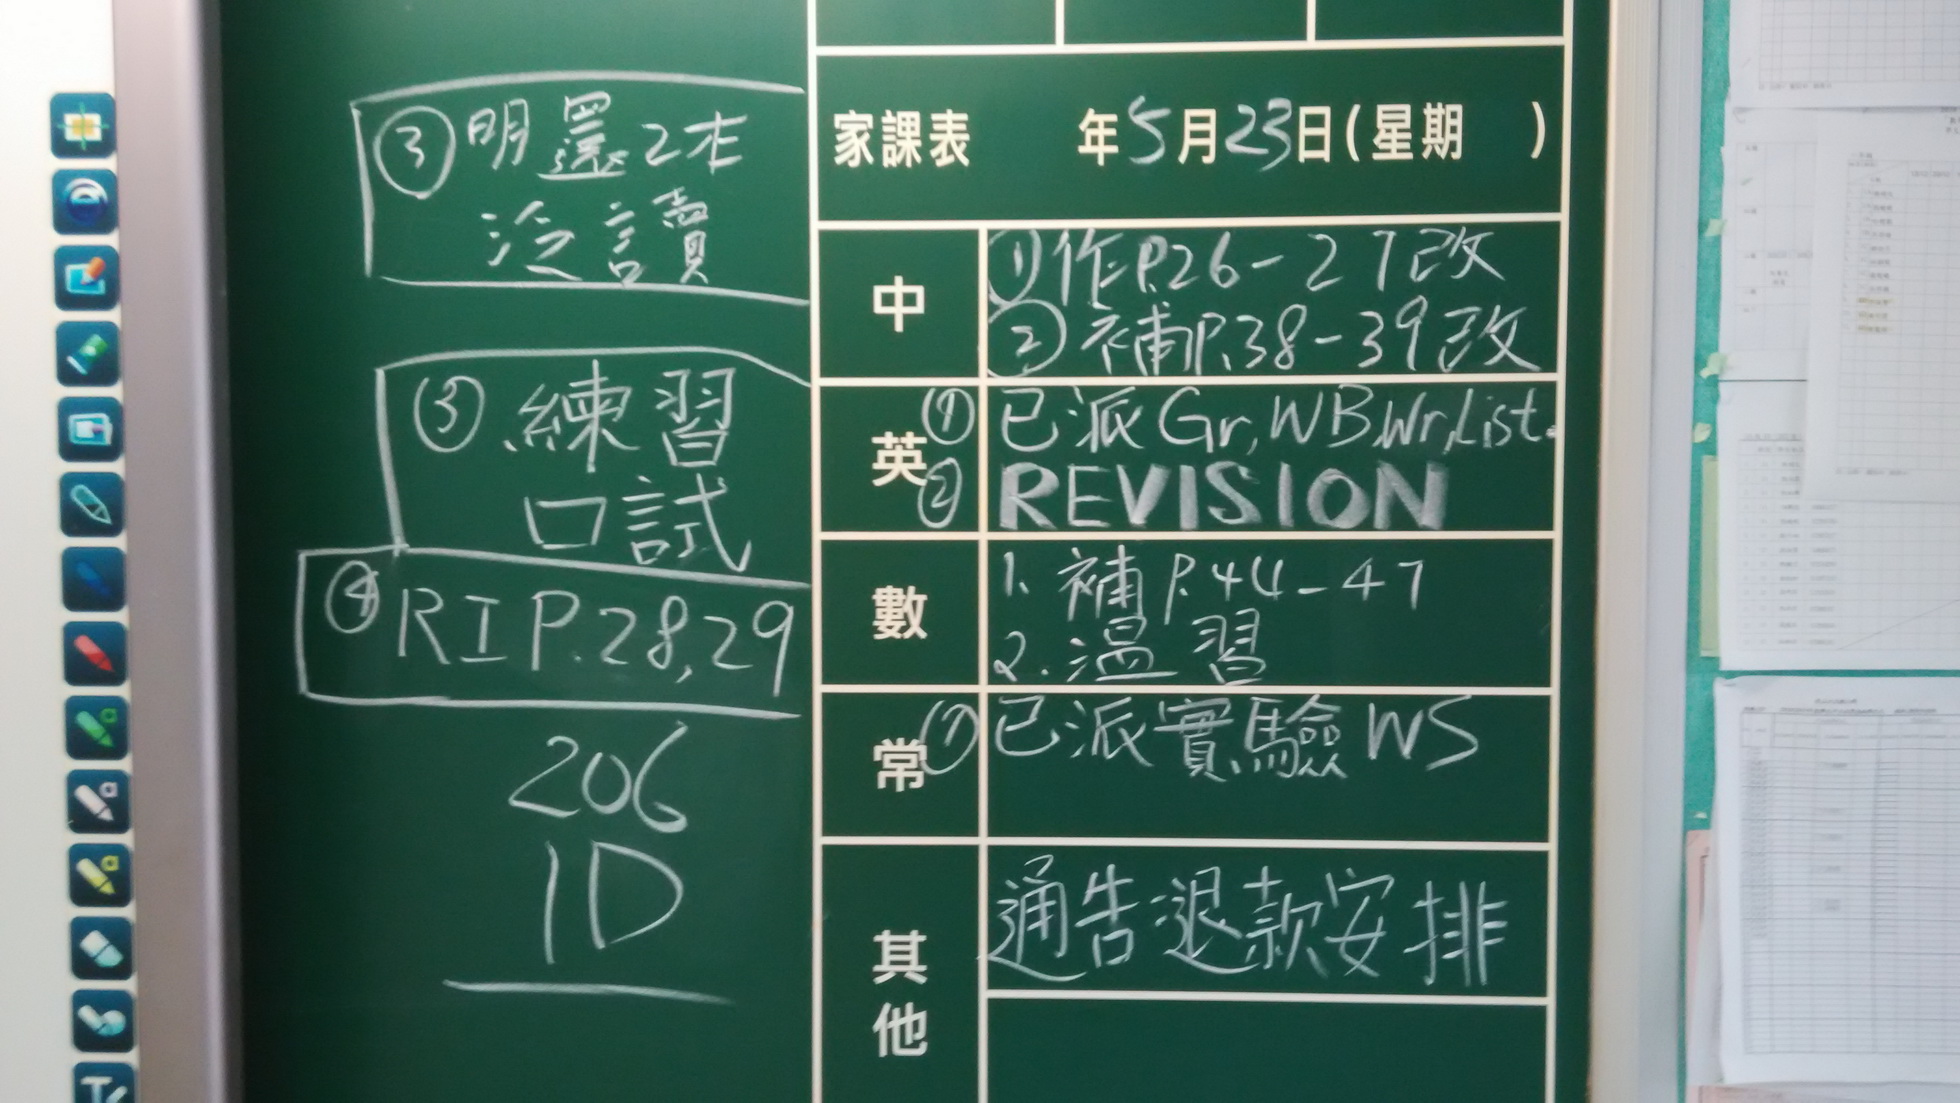 家課表 年5月23日(星期 )
中
①作P.26-27改
②補P.38-39改
③明還2本
泛讀
英
①已派Gr, WB, Wr, List.
②REVISION
③練習
口試
④RIP.28,29
數
1. 補P.44-47
2. 溫習
常
①已派實驗WS
其他
通告退款安排
206
1D